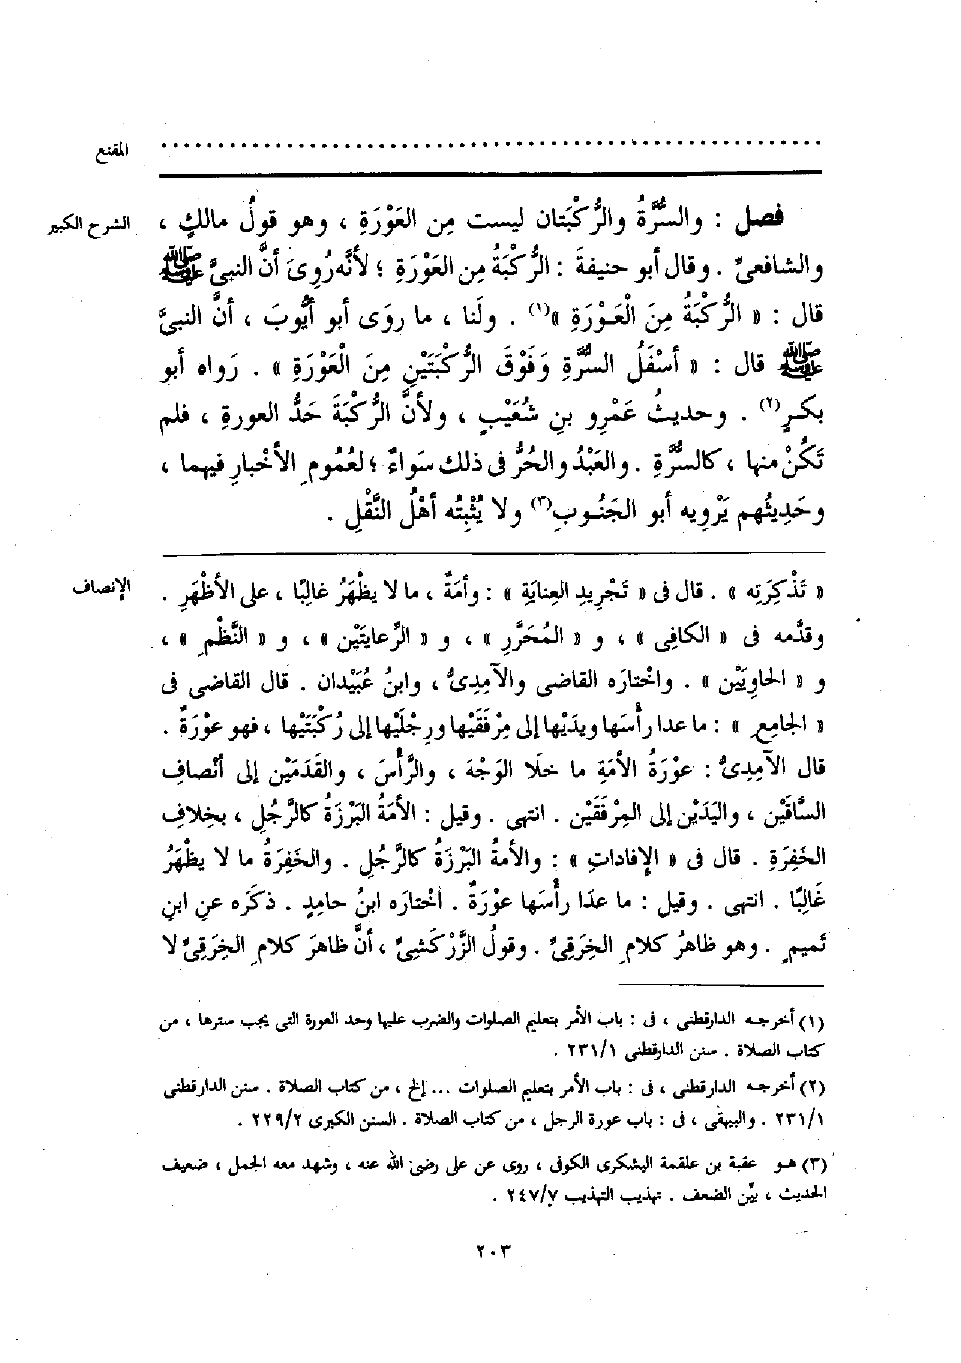 المقنع
الشرح الكبير
فصل : والسُّرَّةُ والرُّكْبَتان ليست مِن العَوْرَةِ ، وهو قولُ مالكٍ ،
والشافعىِّ . وقال أبو حنيفةَ : الرُّكْبَةُ مِن العَوْرَةِ ؛ لأنَّه رُوِىَ أنَّ النبىَّ ﷺ
قال : « الرُّكْبَةُ مِنَ الْعَـوْرَةِ »(١) . ولَنا ، ما روَى أبو أيُّوبَ ، أنَّ النبىَّ
ﷺ قال : « أسْفَلُ السُّرَّةِ وَفَوْقَ الرُّكْبَتَيْنِ مِنَ الْعَوْرَةِ » . رَواه أبو
بكرٍ(٢) . وحديثُ عَمْرِو بنِ شُعَيْبٍ ، ولأنَّ الرُّكْبَةَ حَدُّ العورةِ ، فلم
تَكُنْ منها ، كالسُّرَّةِ . والعَبْدُ والحُرُّ فى ذلك سَواءٌ ؛ لعُمُومِ الأخْبارِ فيهما ،
وحَدِيثُهم يَرْوِيه أبو الجَنُـوبِ(٣) ولا يُثْبِتُه أهْلُ النَّقْلِ .
الإنصاف
« تَذْكِرَتِه » . قال فى « تَجْرِيدِ العِنايَةِ » : وأمَةٌ ، ما لا يظْهَرُ غالبًا ، على الأظْهَرِ .
وقدَّمه فى « الكافِى » ، و « المُحَرَّرِ » ، و « الرِّعايَتَيْن » ، و « النَّظْمِ » ،
و « الحاوِيَيْن » . واخْتارَه القاضى والآمِدِىُّ ، وابنُ عُبَيْدان . قال القاضى فى
« الجامِعِ » : ما عدا رأْسَها ويدَيْها إلى مِرْفَقَيْها ورِجْلَيْها إلى رُكْبَتَيْها ، فهو عوْرَةٌ .
قال الآمِدِىُّ : عوْرَةُ الأمَةِ ما خلَا الوَجْهَ ، والرَّأْسَ ، والقَدَمَيْن إلى أنْصافِ
السَّاقَيْن ، واليَدَيْن إلى المِرْفَقَيْن . انتهى . وقيل : الأمَةُ البَرْزَةُ كالرَّجُلِ ، بخِلافِ
الخَفِرَةِ . قال فى « الإِفاداتِ » : والأمةُ البَرْزَةُ كالرَّجُلِ . والخَفِرَةُ ما لا يظْهَرُ
غَالِبًا . انتهى . وقيل : ما عدَا رأْسَها عوْرَةٌ . اخْتارَه ابنُ حامِدٍ . ذكَرَه عنِ ابنِ
تَميمٍ . وهو ظاهرُ كلامِ الخِرَقِىِّ . وقولُ الزَّرْكَشِىِّ ، أنَّ ظاهرَ كلامِ الخِرَقِىِّ لا
(١) أخرجـه الدارقطنى ، فى : باب الأمر بتعليم الصلوات والضرب عليها وحد العورة التى يجب سترها ، من
كتاب الصلاة . سنن الدارقطنى ٢٣١/١ .
(٢) أخرجـه الدارقطنى ، فى : باب الأمر بتعليم الصلوات ... إلخ ، من كتاب الصلاة . سنن الدارقطنى
٢٣١/١ . والبيهقى ، فى : باب عورة الرجل ، من كتاب الصلاة . السنن الكبرى ٢٢٩/٢ .
(٣) هـو عقبة بن علقمة اليشكرى الكوفى ، روى عن على رضى الله عنه ، وشهد معه الجمل ، ضعيف
الحديث ، بيِّن الضعف . تهذيب التهذيب ٢٤٧/٧ .
٢٠٣